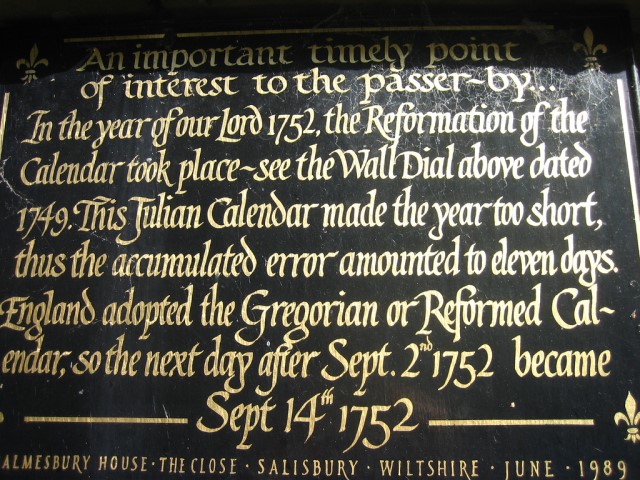 An important timely point
of interest to the passer~by...
In the year of our Lord 1752, the Reformation of the
Calendar took place~see the Wall Dial above dated
1749. This Julian Calendar made the year too short,
thus the accumulated error amounted to eleven days.
England adopted the Gregorian or Reformed Cal-
endar, so the next day after Sept. 2nd 1752 became
Sept 14th 1752
ALMESBURY HOUSE · THE CLOSE · SALISBURY · WILTSHIRE · JUNE · 1989